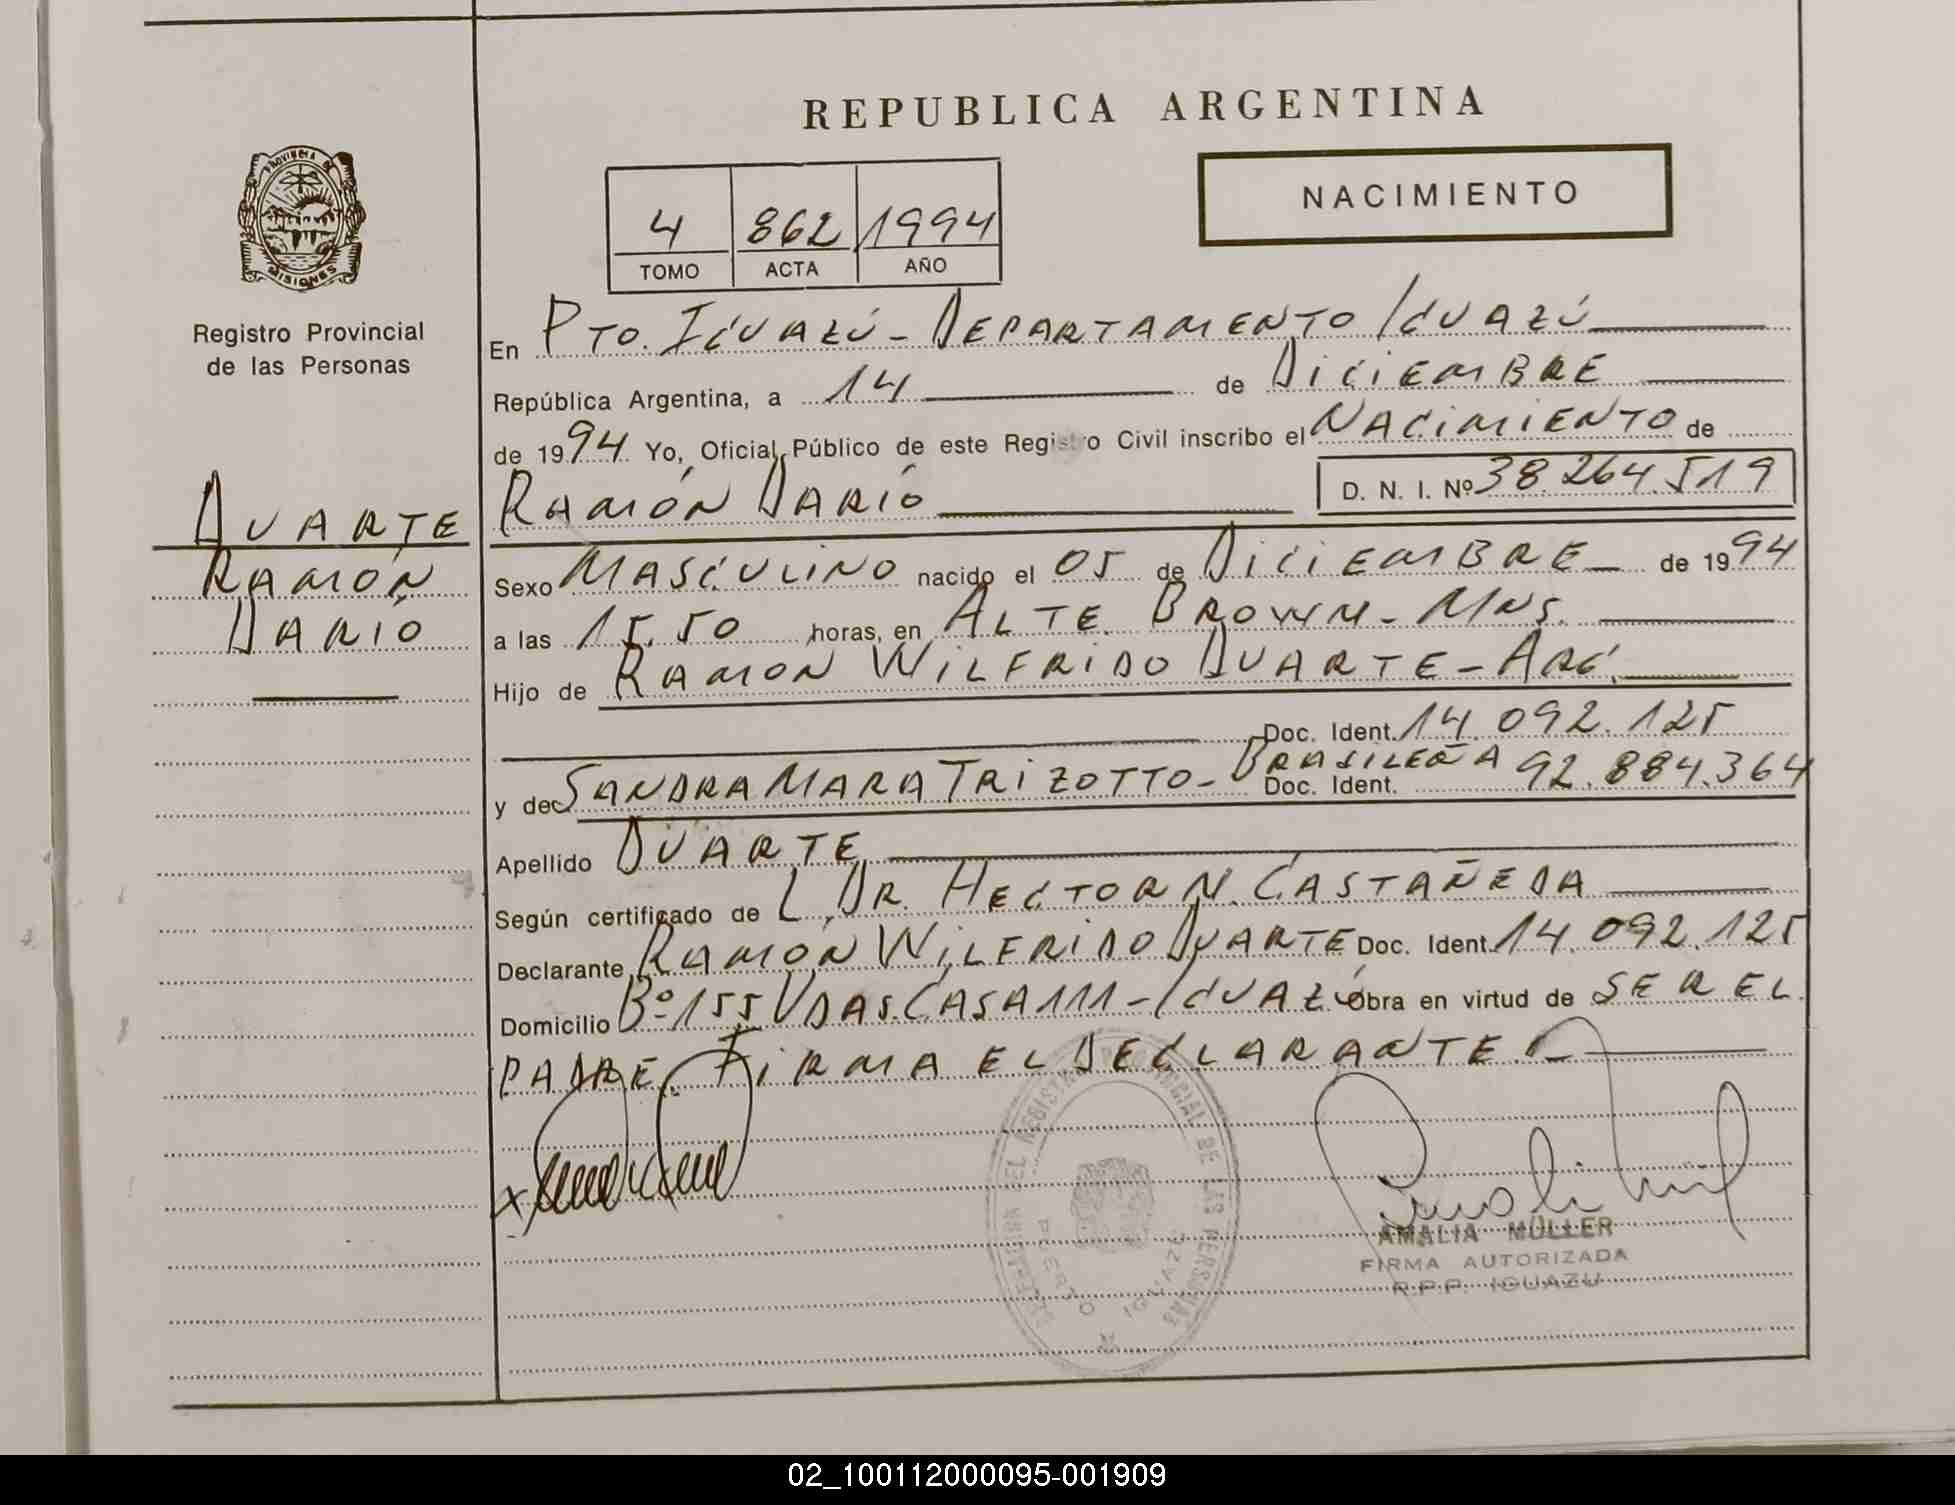 REPUBLICA ARGENTINA
PROVINCIA DE
MISIONES
Registro Provincial
de las Personas
4 862 1994
TOMO ACTA AÑO
NACIMIENTO
En PTO. IGUAZÚ - DEPARTAMENTO IGUAZÚ
República Argentina, a 14 de DICIEMBRE
de 1994 Yo, Oficial Público de este Registro Civil inscribo el NACIMIENTO de
RAMÓN DARIO D. N. I. Nº 38.264.519
DUARTE
RAMÓN
DARIO
Sexo MASCULINO nacido el 05 de DICIEMBRE de 1994
a las 15.50 horas, en ALTE. BROWN - MNS.
Hijo de RAMON WILFRIDO DUARTE - ARG.
Doc. Ident. 14.092.125
y de SANDRA MARA TRIZOTTO - BRASILEÑA Doc. Ident. 92.884.364
Apellido DUARTE
Según certificado de L DR. HECTOR N. CASTAÑEDA
Declarante RAMÓN WILFRIDO DUARTE Doc. Ident. 14.092.125
Domicilio Bº 155 VDAS. CASA 111 - IGUAZÚ Obra en virtud de SER EL
PADRE. FIRMA EL DECLARANTE.
X
DEL REGISTRO PROVINCIAL DE LAS PERSONAS
PUERTO IGUAZU
AMALIA MÜLLER
FIRMA AUTORIZADA
R.P.P. IGUAZU
02_100112000095-001909